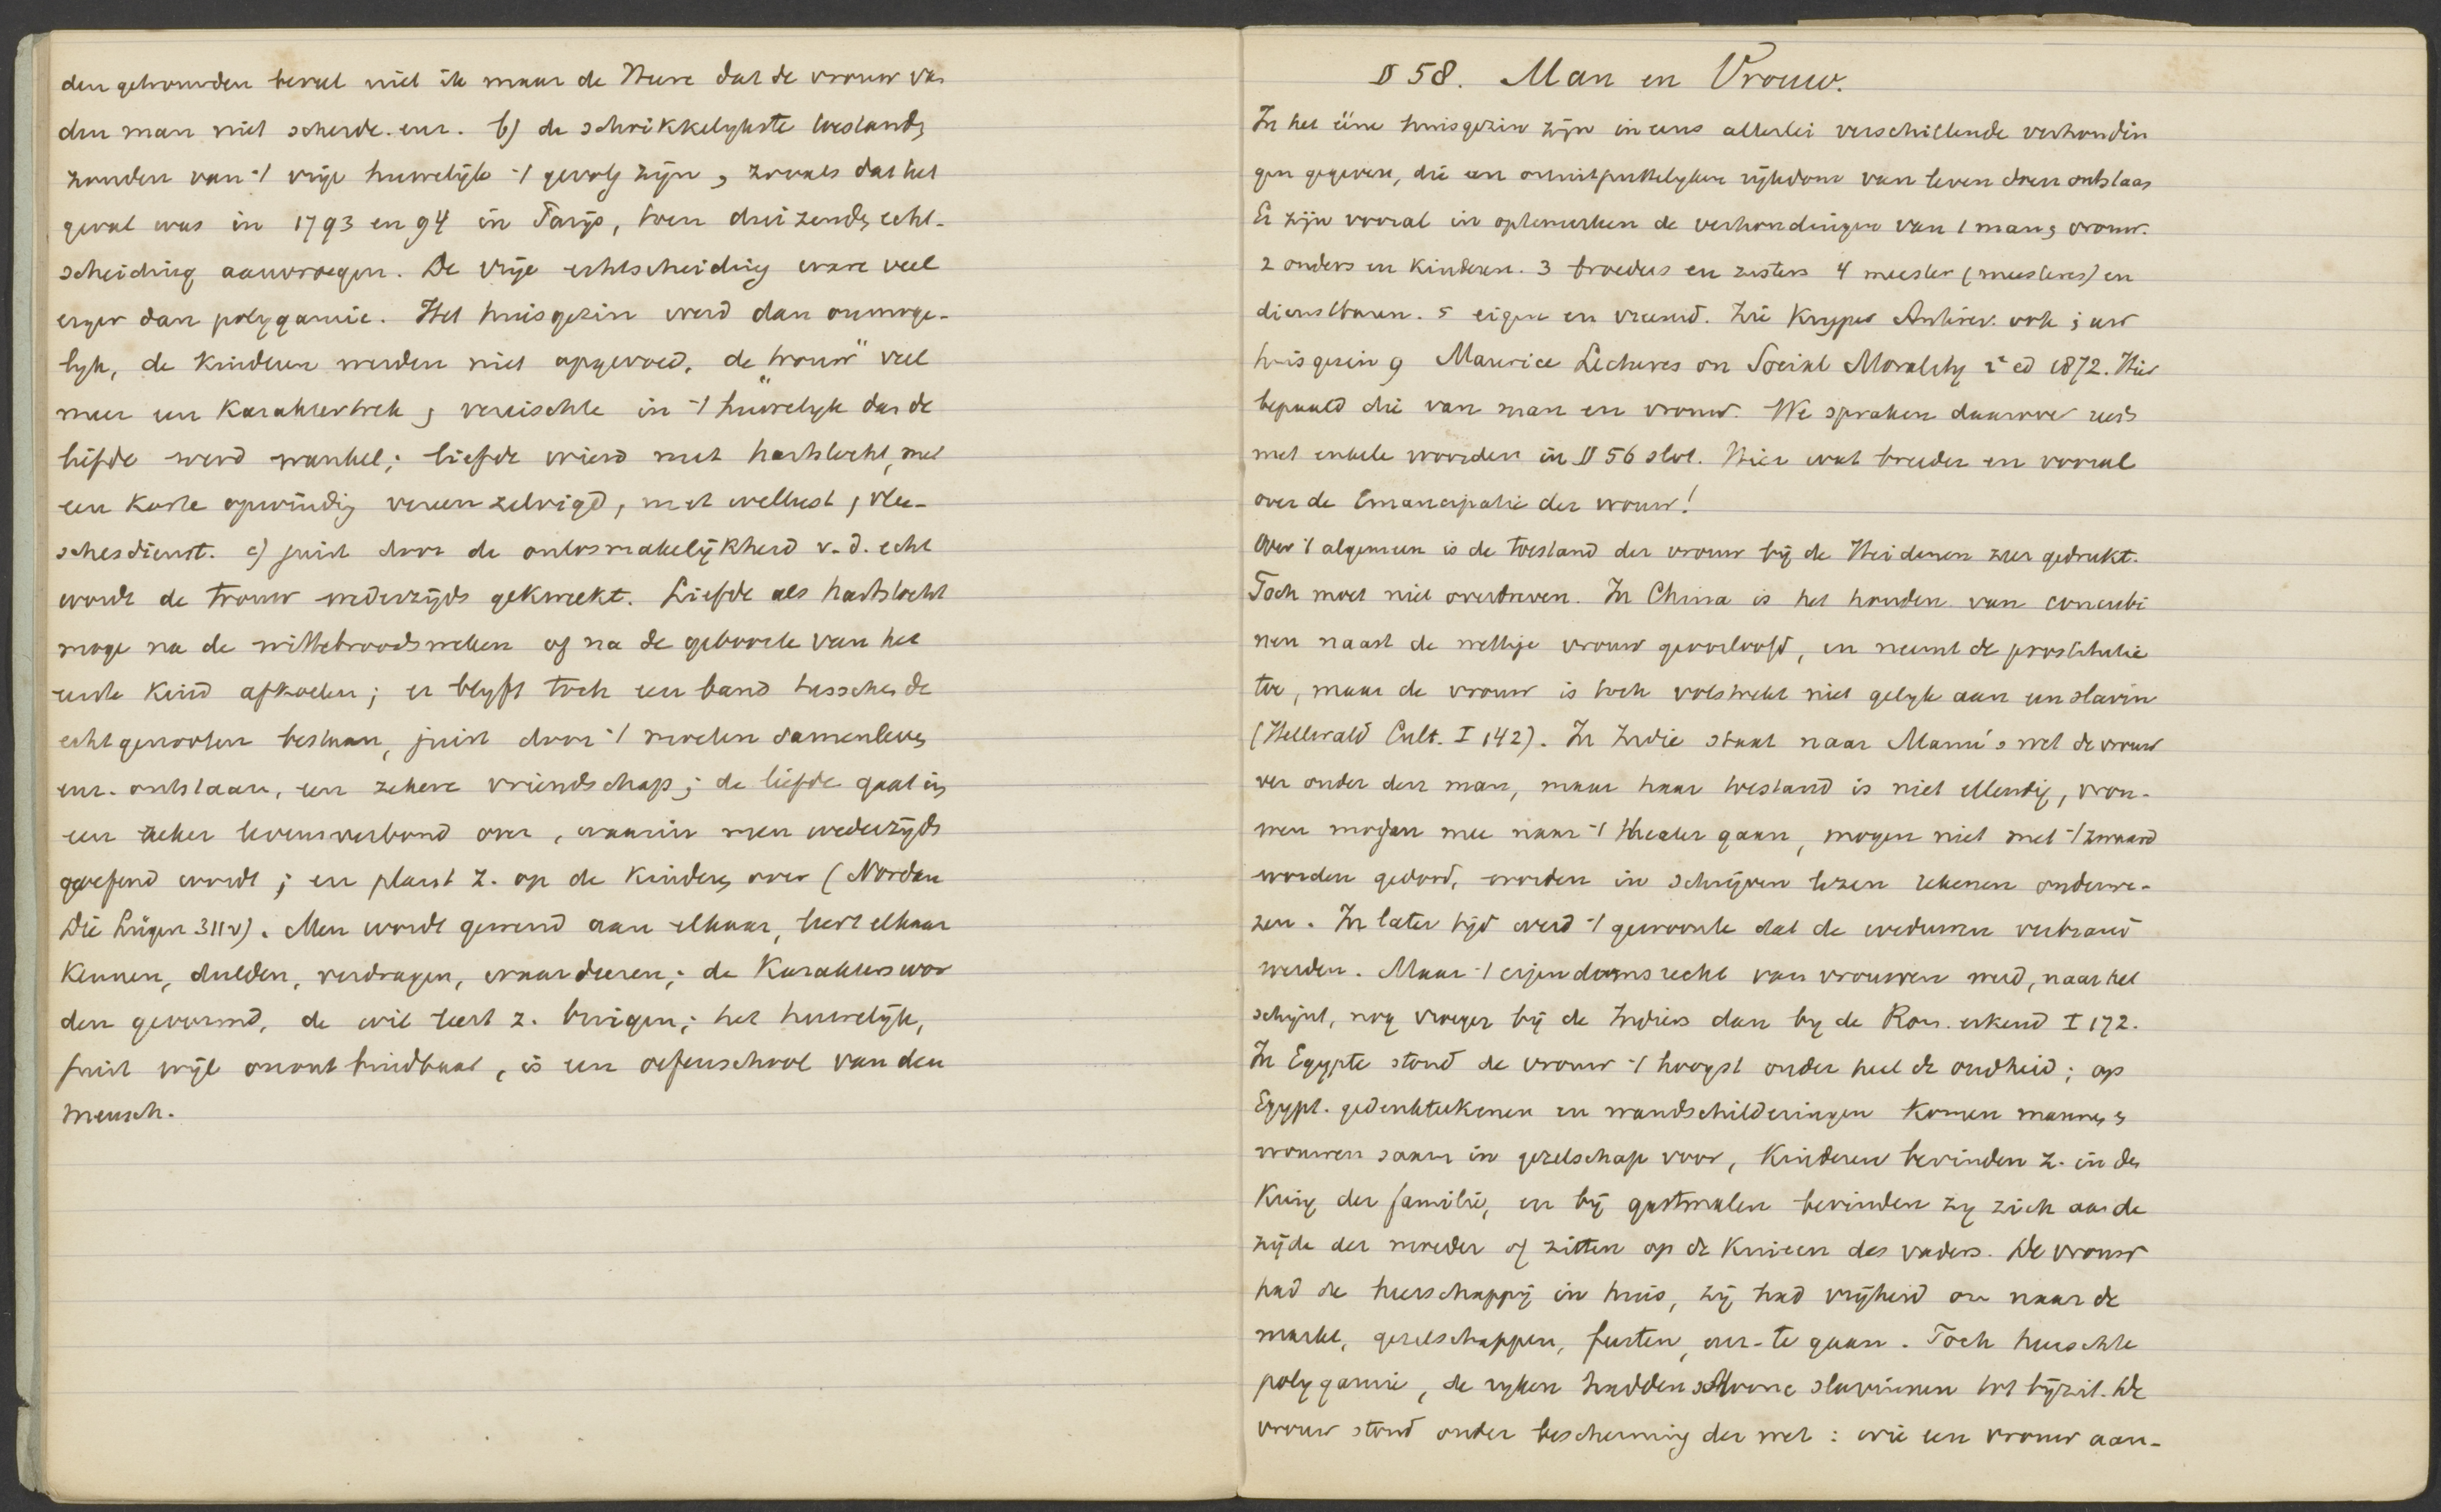 den getrouwden beveel niet ik maar de Heere dat de vrouw van
den man niet scheide. enz. b) de schrikkelykste toestanden
zouden van 't vrije huwelijk 't gevolg zijn, zooals dat het
geval was in 1793 en 94 in Parijs, toen duizenden echt-
scheiding aanvroegen. De vrije echtscheiding ware veel
erger dan polygamie. Het huisgezin werd dan onmoge-
lyk, de kinderen werden niet opgevoed, de "trouw" veel
meer een karaktertrek, vereischte in 't huwelyk dan de
liefde werd wankel; liefde wierd met hartstocht, met
een korte opwinding vereenzelvigd, met wellust, vlee-
schesdienst. c) juist door de onlosmakelijkheid v. d. echt
wordt de trouw wederzijds gekweekt. Liefde als hartstocht
moge na de wittebroodsweken of na de geboorte van het
eerste kind afkoelen; er blyft toch een band tusschen de
echtgenooten bestaan, juist door 't moeten samenleven
enz. ontstaan, een zekere vriendschap; de liefde gaat in
een zeker levensverbond over, waarin men wederzijds
geoefend wordt; en plant z. op de kinderen over (Nordau
Die Lügen 311v). Men wordt gewend aan elkaar, leert elkaar
kennen, dulden, verdragen, waardeeren; de karakters wor
den gevormd, de wil leert z. buigen; het huwelijk,
juist wijl onontbindbaar, is een oefenschool van den
mensch.
§ 58. Man en Vrouw.
In het ééne huisgezin zijn in eens allerlei verschillende verhoudin
gen gegeven, die een onuitputtelyken rijkdom van leven doen ontstaan
Er zijn vooral in optemerken de verhoudingen van 1 man en vrouw.
2 ouders en kinderen. 3 broeders en zusters 4 meester (meesteres) en
dienstbaren. 5 eigen en vreemd. Zie Kuyper Antirev. ook in uw
huisgezin en Maurice Lectures on Social Morality 2e ed 1872. Hier
bepaald die van man en vrouw. We spraken daarover reeds
met enkele woorden in § 56 slot. Hier wat breeder en vooral
over de Emancipatie der vrouw!
Over 't algemeen is de toestand der vrouw bij de Heidenen zeer gedrukt.
Toch moet niet overdreven. In China is het houden van concubi
nen naast de wettige vrouw geoorloofd, en neemt de prostitutie
toe, maar de vrouw is toch volstrekt niet gelyk aan een slavin
(Hellwald Cult. I 142). In Indie staat naar Manu's wet de vrouw
ver onder den man, maar haar toestand is niet ellendig, vrou-
wen mogen mee naar 't theater gaan, mogen niet met 't zwaard
worden gedood, worden in schrijven lezen rekenen onderwe-
zen. In later tijd werd 't gewoonte dat de weduwen verbrand
werden. Maar 't eigendomsrecht van vrouwen werd, naar het
schynt, nog vroeger bij de Indiers dan by de Rom. erkend I 172.
In Egypte stond de vrouw 't hoogst onder heel de oudheid; op
Egypt. gedenkteekenen en wandschilderingen komen mannen en
vrouwen saam in gezelschap voor, kinderen bevinden z. in den
kring der familie, en bij gastmalen bevinden zy zich aan de
zijde der moeder of zitten op de knieen des vaders. De vrouw
had de heerschappij in huis, zij had vrijheid om naar de
markt, gezelschappen, feesten, enz. te gaan. Toch heerschte
polygamie, de ryken hadden schoone slavinnen tot bijzit. De
vrouw stond onder bescherming der wet: wie een vrouw aan-